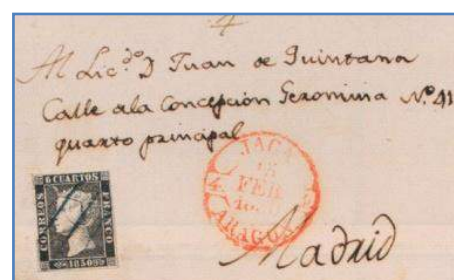 4
Al Lic.do D Juan de Quintana
Calle de la Concepción Geronima N.o 41
quarto principal
JAGA
FEB
ARAGON
6 CUARTOS
CORREOS
FRANCO
1850
Madrid